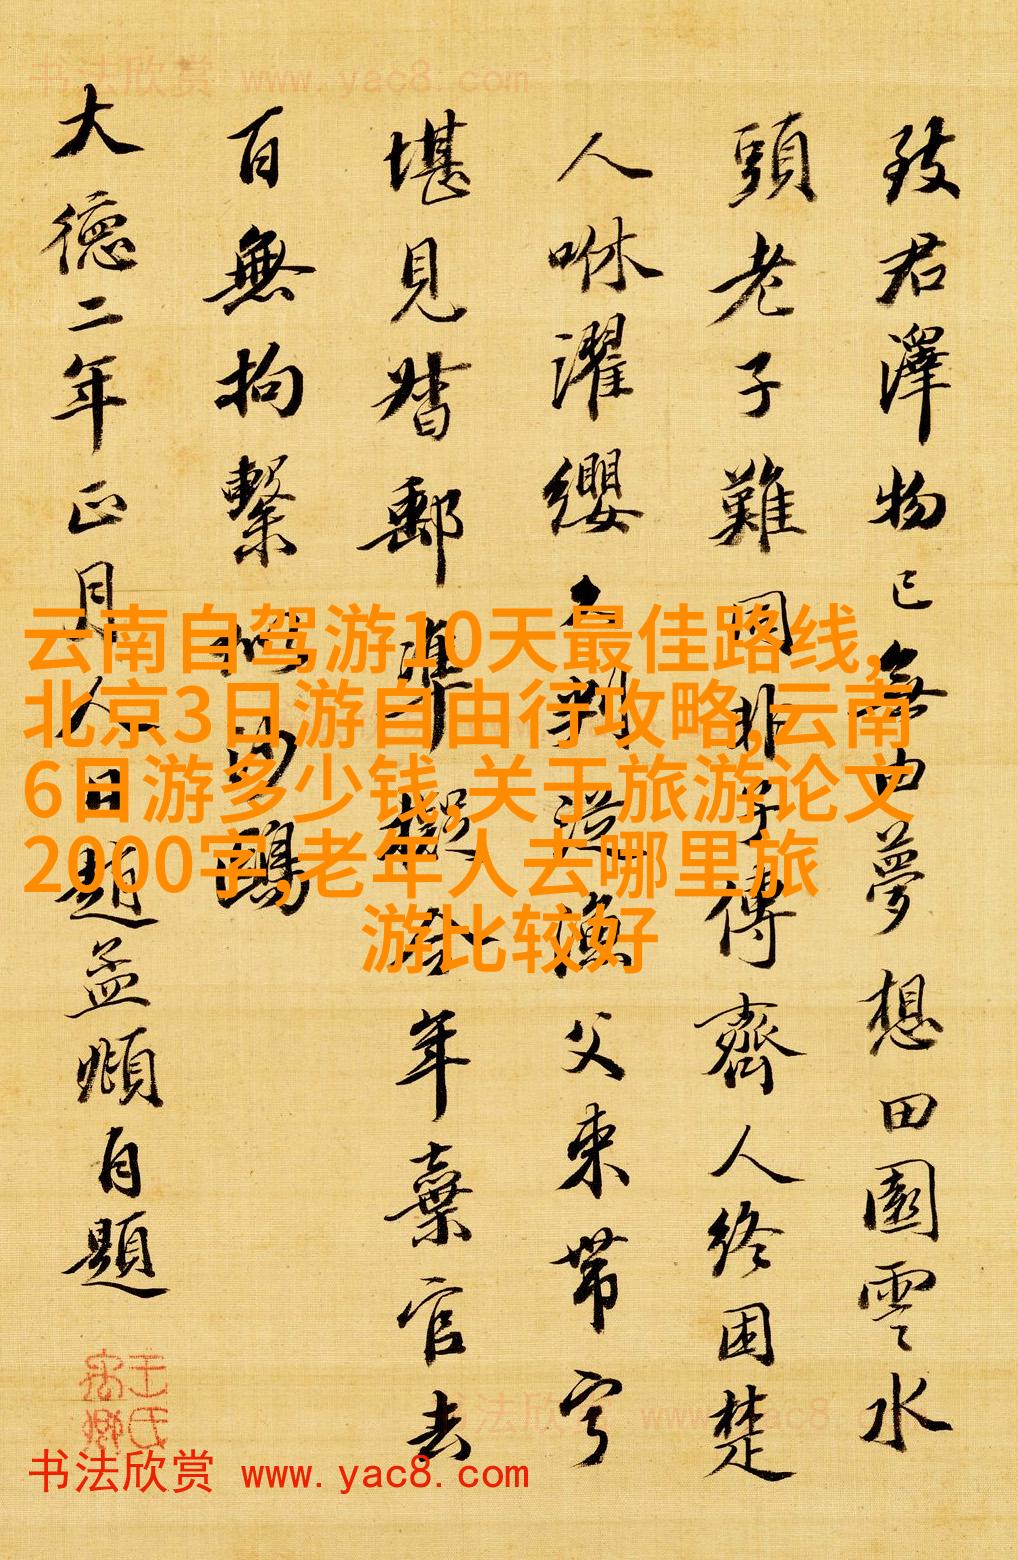 书法欣赏 www.yac8.com
致君澤物已無由夢想田園雲水
頭老子難同非子傳齊人終困楚
人咻濯纓久判從漁父束帶寧
堪見督郵準擬今年棄官去
百無拘繫似沙鷗
大德二年正月人日趙孟頫自題
云南自驾游10天最佳路线,
北京3日游自由行攻略,云南
6日游多少钱,关于旅游论文
2000字,老年人去哪里旅
游比较好
书法欣赏 www.yac8.com
书法欣赏 www.yac8.com